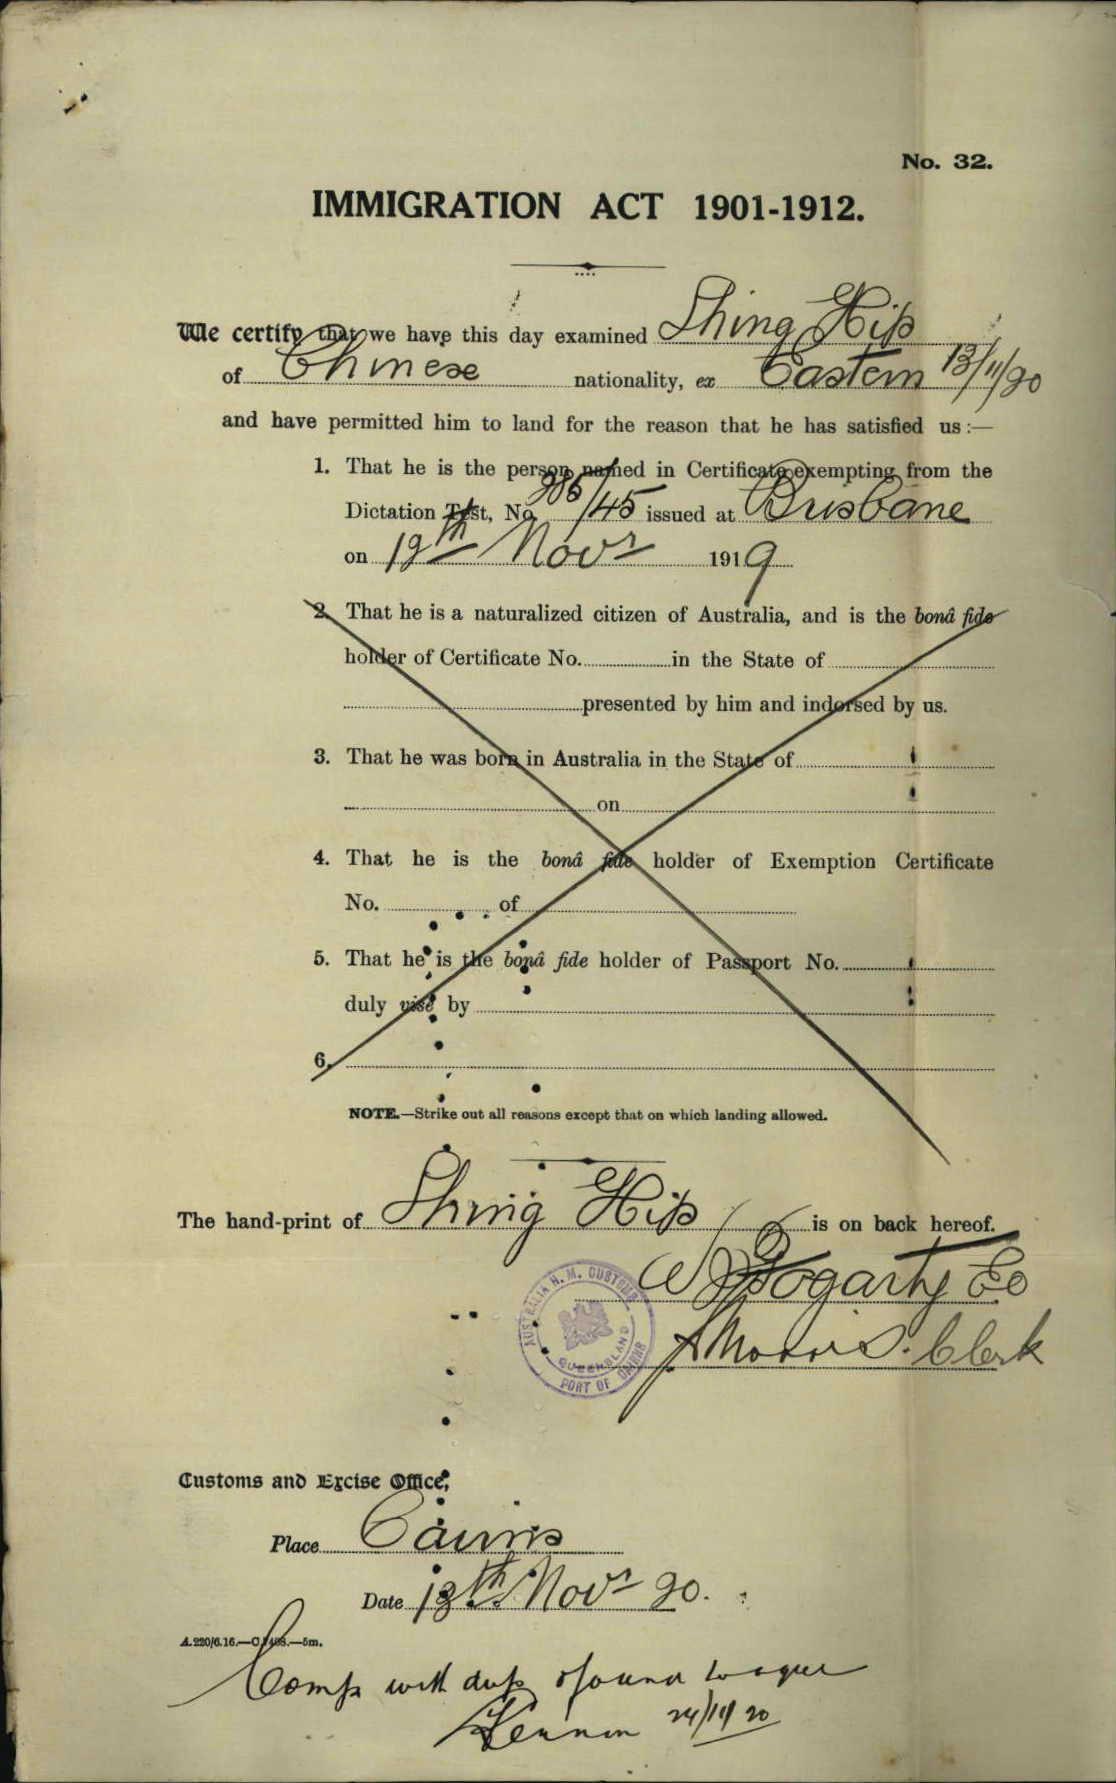 No. 32.
IMMIGRATION ACT 1901-1912.
We certify that we have this day examined Shing Hip
of Chinese nationality, ex Eastern 13/11/20
and have permitted him to land for the reason that he has satisfied us :—
1. That he is the person named in Certificate exempting from the
Dictation Test, No. 286/45 issued at Brisbane
on 12th Novr 1919
2. That he is a naturalized citizen of Australia, and is the bonâ fide
holder of Certificate No. in the State of
presented by him and indorsed by us.
3. That he was born in Australia in the State of
on
4. That he is the bonâ fide holder of Exemption Certificate
No. of
5. That he is the bonâ fide holder of Passport No.
duly visé by
6.
NOTE.—Strike out all reasons except that on which landing allowed.
The hand-print of Shing Hip is on back hereof.
Fogarty EO
AUSTRALIA H. M. CUSTOMS
QUEENSLAND
PORT OF CAIRNS
Morris. Clerk
Customs and Excise Office,
Place Cairns
Date 13th Novr 20.
A.220/6.16.—C.—5m.
Comp with dup & found to agree
Lennon 24/11/20